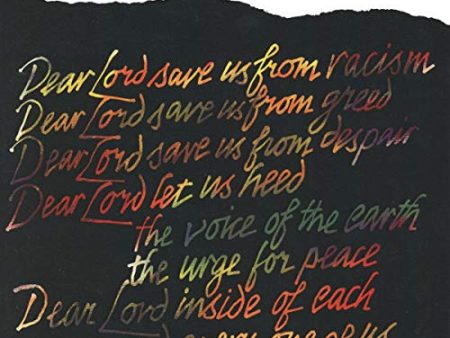 Dear Lord save us from racism
Dear Lord save us from greed
Dear Lord save us from despair
Dear Lord let us heed
the voice of the earth
the urge for peace
Dear Lord inside of each